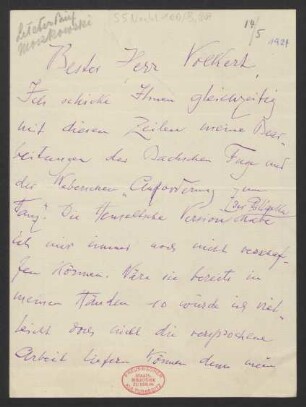 Letzter Brief
Moszkowski
55 Nachl 100/B,
14/5
1921
Bester Herr Volkert,
Ich schicke Ihnen gleichzeitig
mit diesen Zeilen meine Bear-
beitungen der Bachschen Fuge und
der Weberschen "Aufforderung zum
Tanz". Die Henseltsche Version habe
ich mir immer noch nicht verschaf-
fen können. Wäre sie bereits in
meinen Händen so würde ich viel-
leicht doch nicht die versprochene
Arbeit liefern können denn mein